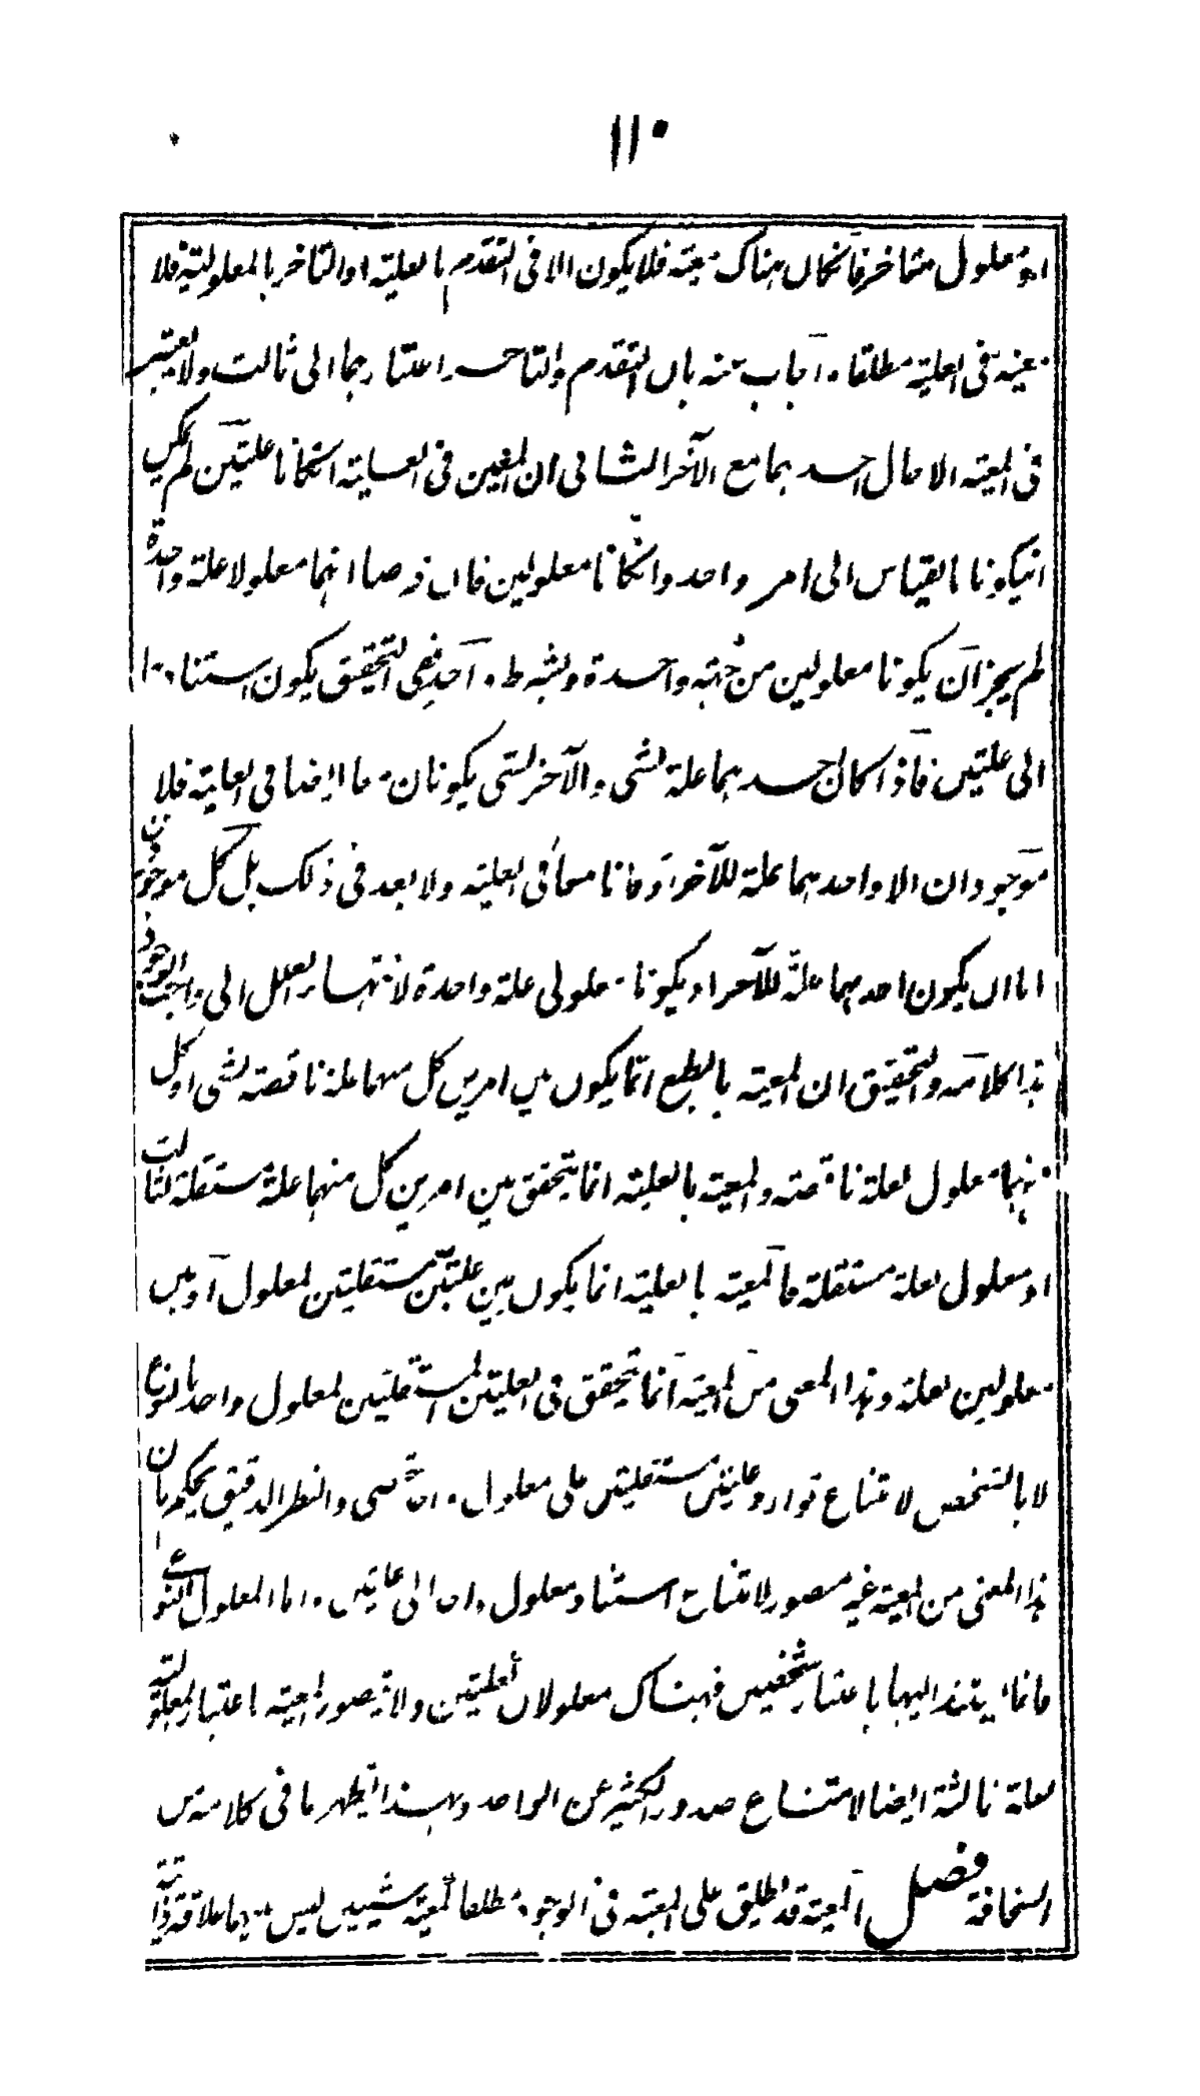 ١١٠
او معلول متأخر فانكان هناك معية فلا يكون الا فى التقدم بالعلية او التاخر بالمعلولية فلا
معية فى العلية مطلقا واجاب عنه بان التقدم والتاخر اعتبارهما الى ثالث ولا يعتبر
فى المعية الا حال احدهما مع الآخر الثانى ان المعين فى العلية انكانا علتين لم يمكن
انيكونا بالقياس الى امر واحد وانكانا معلولين فان فرضا انهما معلولا علة واحدة
لم يجز ان يكونا معلولين من جهة واحدة وبشرط واحد ففى التحقيق يكون استنادهما
الى علتين فاذا كان احدهما علة لشئ والآخر لشئ يكونان معا ايضا فى العلية فلا
موجودان الا واحدهما علة للآخر او كانا معا فى العلية ولا بعد فى ذلك بل كل موجودين
اما ان يكون احدهما علة للآخر او يكونا معلولى علة واحدة لانتهاء العلل الى واجب الوجود
هذا كلامه والتحقيق ان المعية بالطبع انما يكون بين امرين كل منهما علة ناقصة لشئ او كل
منهما معلول لعلة ناقصة والمعية بالعلية انما يتحقق بين امرين كل منهما علة مستقلة لثالث
او معلول لعلة مستقلة فالمعية بالعلية انما يكون بين علتين مستقلتين لمعلول او بين
معلولين لعلة وهذا المعنى من المعية انما يتحقق فى العلتين المستقلتين لمعلول واحد بالنوع
لا بالشخص لامتناع توارد علتين مستقلتين على معلول واحد شخصى والنظر الدقيق يحكم بان
هذا المعنى من المعية غير متصور لامتناع استناد معلول واحد الى علتين واما المعلول النوعى
فانما يستند اليهما باعتبار شخصين فهناك معلولان لعلتين ولا يتصور المعية باعتبار المعلولية
لعلة ثالثة ايضا لامتناع صدور الكثير عن الواحد وبهذا يظهر ما فى كلامه من
السخافة فصل المعية قد يطلق على المعية فى الوجود مطلقا كمعية شيئين ليس بينهما علاقة ذاتية